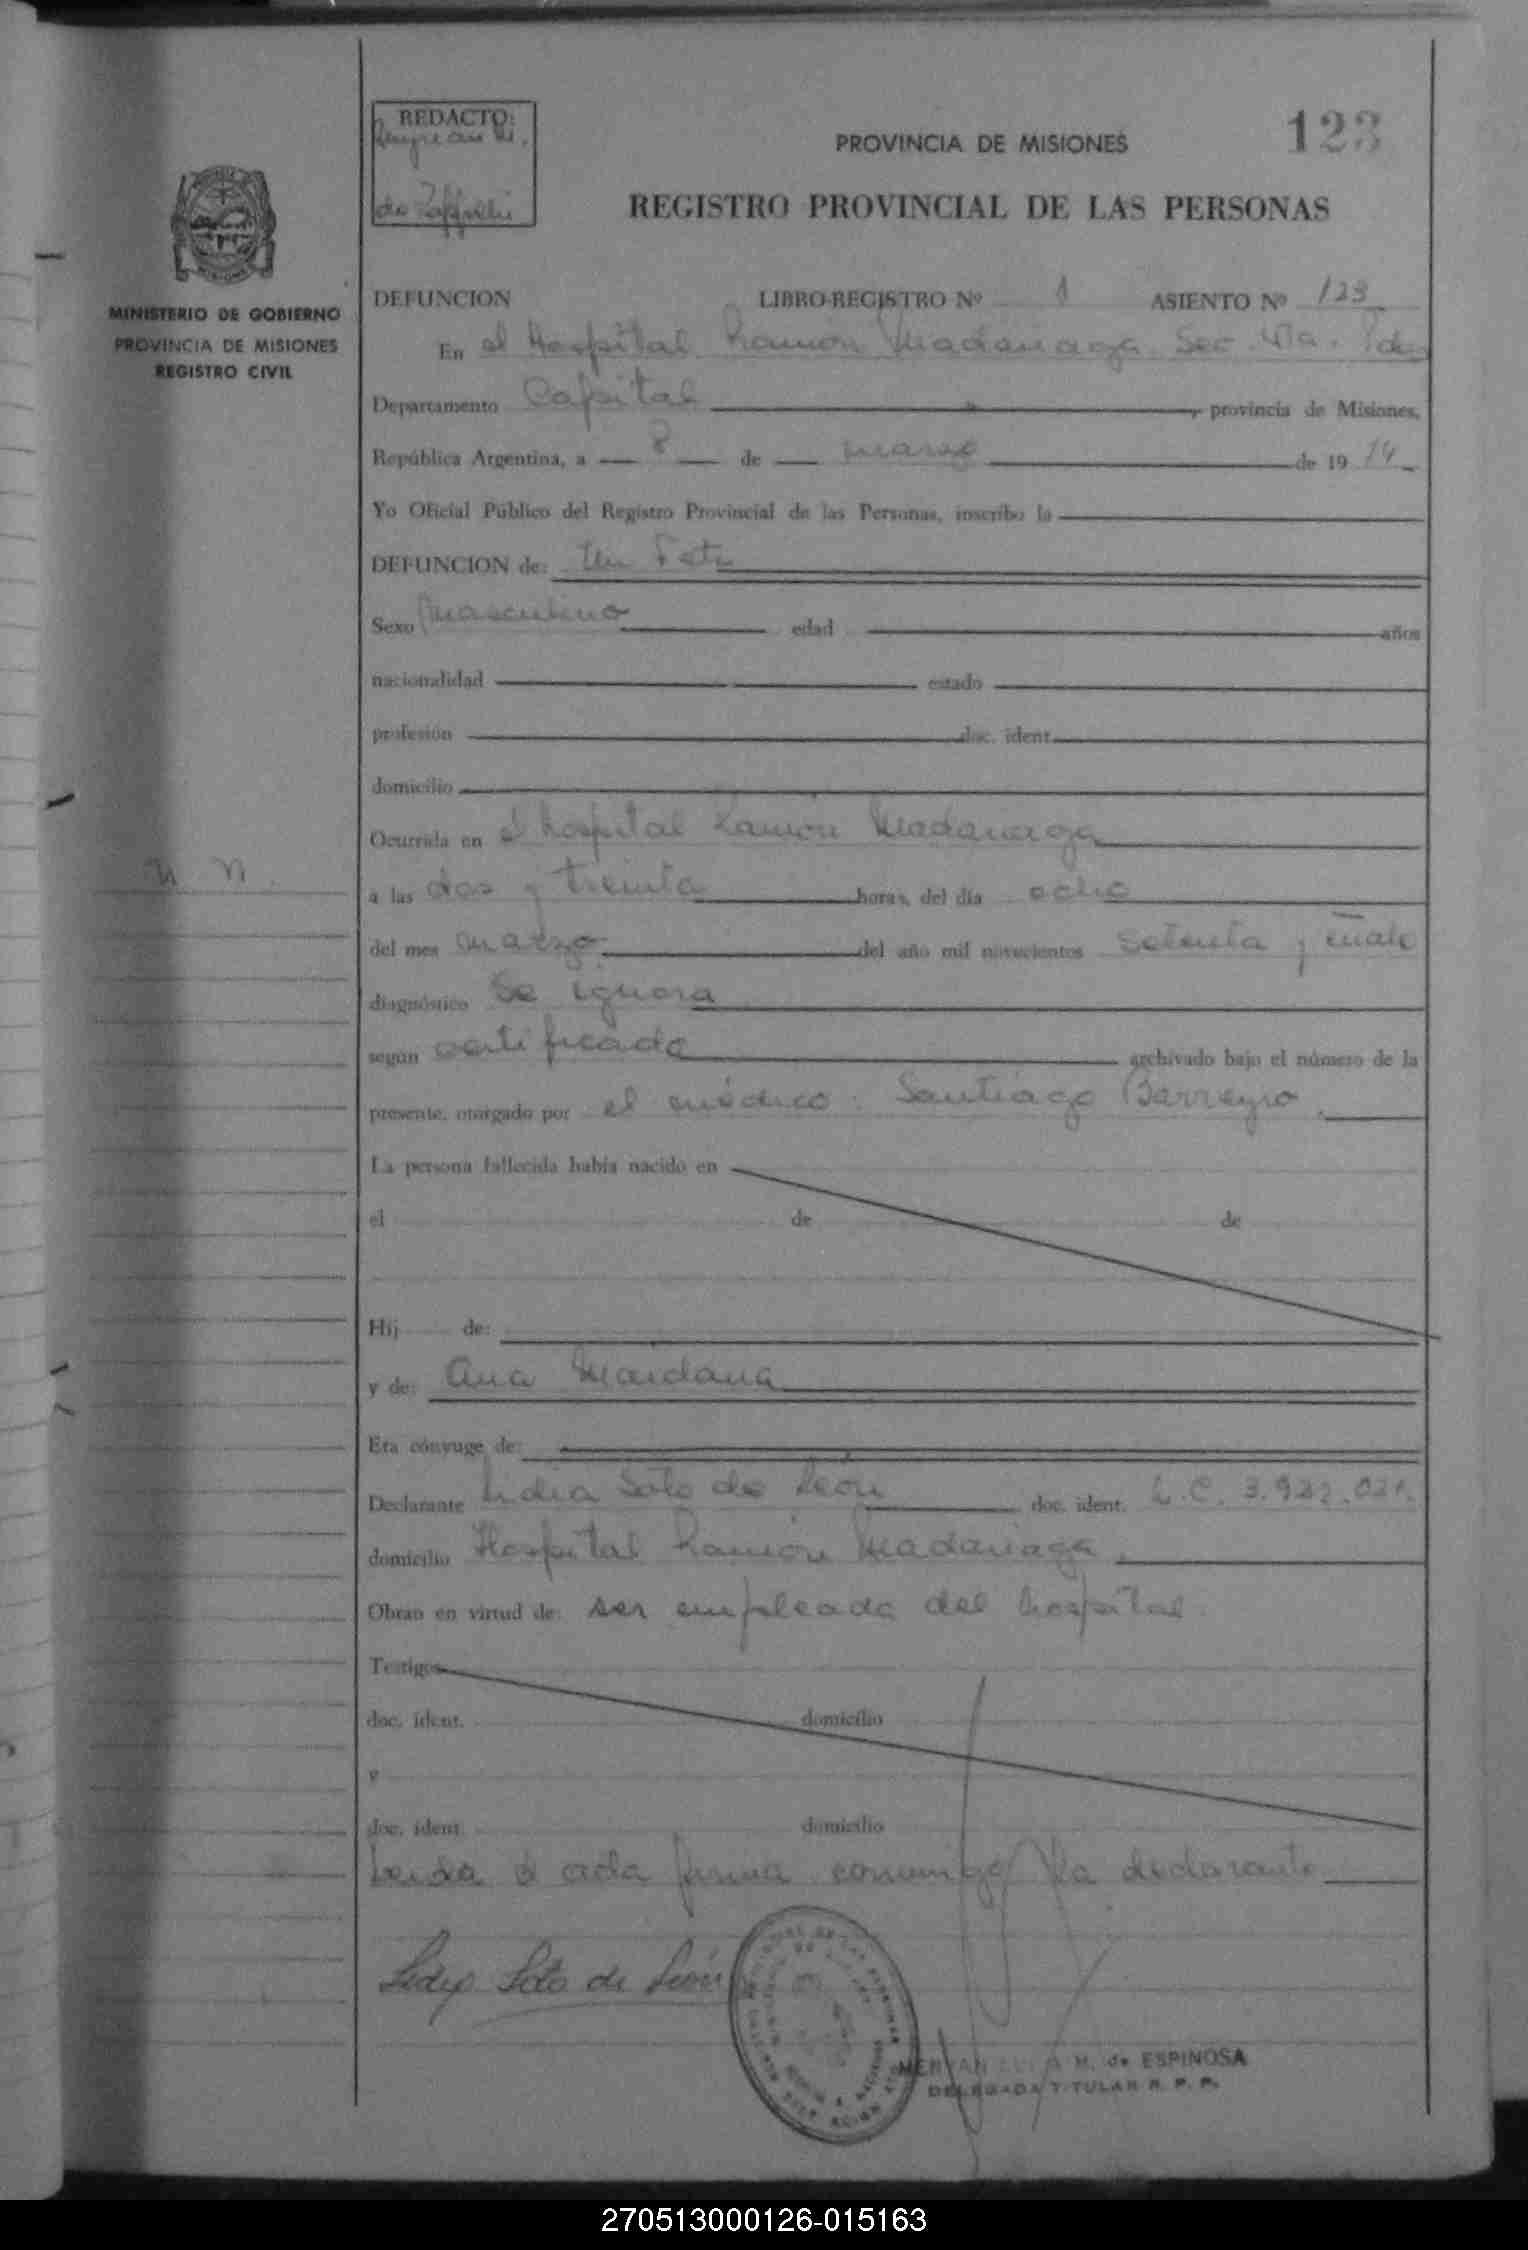 REDACTO:
123
PROVINCIA DE MISIONES
REGISTRO PROVINCIAL DE LAS PERSONAS
MINISTERIO DE GOBIERNO
PROVINCIA DE MISIONES
REGISTRO CIVIL
DEFUNCION LIBRO-REGISTRO Nº 1 ASIENTO Nº 123
En el Hospital Ramón Madariaga. Sec. 4ta. Pdas
Departamento Capital, provincia de Misiones,
República Argentina, a 8 de marzo de 19 74
Yo Oficial Público del Registro Provincial de las Personas, inscribo la
DEFUNCION de: Un Feto
Sexo Masculino edad años
nacionalidad estado
profesión doc. ident.
domicilio
Ocurrida en el hospital Ramón Madariaga
N N.
a las dos y treinta horas, del día ocho
del mes marzo del año mil novecientos setenta y cuatro
diagnóstico Se ignora
según certificado archivado bajo el número de la
presente, otorgado por el médico: Santiago Barreyro.
La persona fallecida había nacido en
el de de
Hij de:
y de: Ana Maidana
Era cónyuge de:
Declarante Lidia Soto de León doc. ident. L.C. 3.922.021.
domicilio Hospital Ramón Madariaga.
Obran en virtud de: ser empleada del hospital.
Testigos
doc. ident. domicilio
y
doc. ident. domicilio
Leida el acta firma conmigo la declarante
Lidia Soto de León
M. de ESPINOSA
DELEGADA TITULAR R. P. P.
270513000126-015163